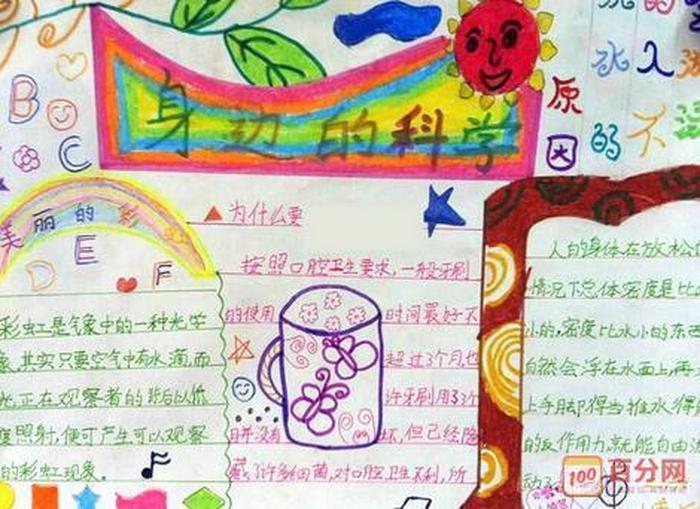 身边的科学
B
C
美丽的彩
D
E
F
彩虹是气象中的一种光学
象,其实只要空气中有水滴,而
光正在观察者的背后以低
度照射,便可产生可以观察
的彩虹现象。
为什么要
按照口腔卫生要求,一般牙刷
的使用 时间最好不
超过3个月,也
许牙刷用3个
并没有坏,但已经隐
藏了许多细菌,对口腔卫生不利,所
的
冰入
原 的不
因
人的身体在放松
情况下总体密度是比
小的,密度比水小的东
自然会浮在水面上,再
上手脚得当推水得
的反作用力,就能自由
动
100 百分网